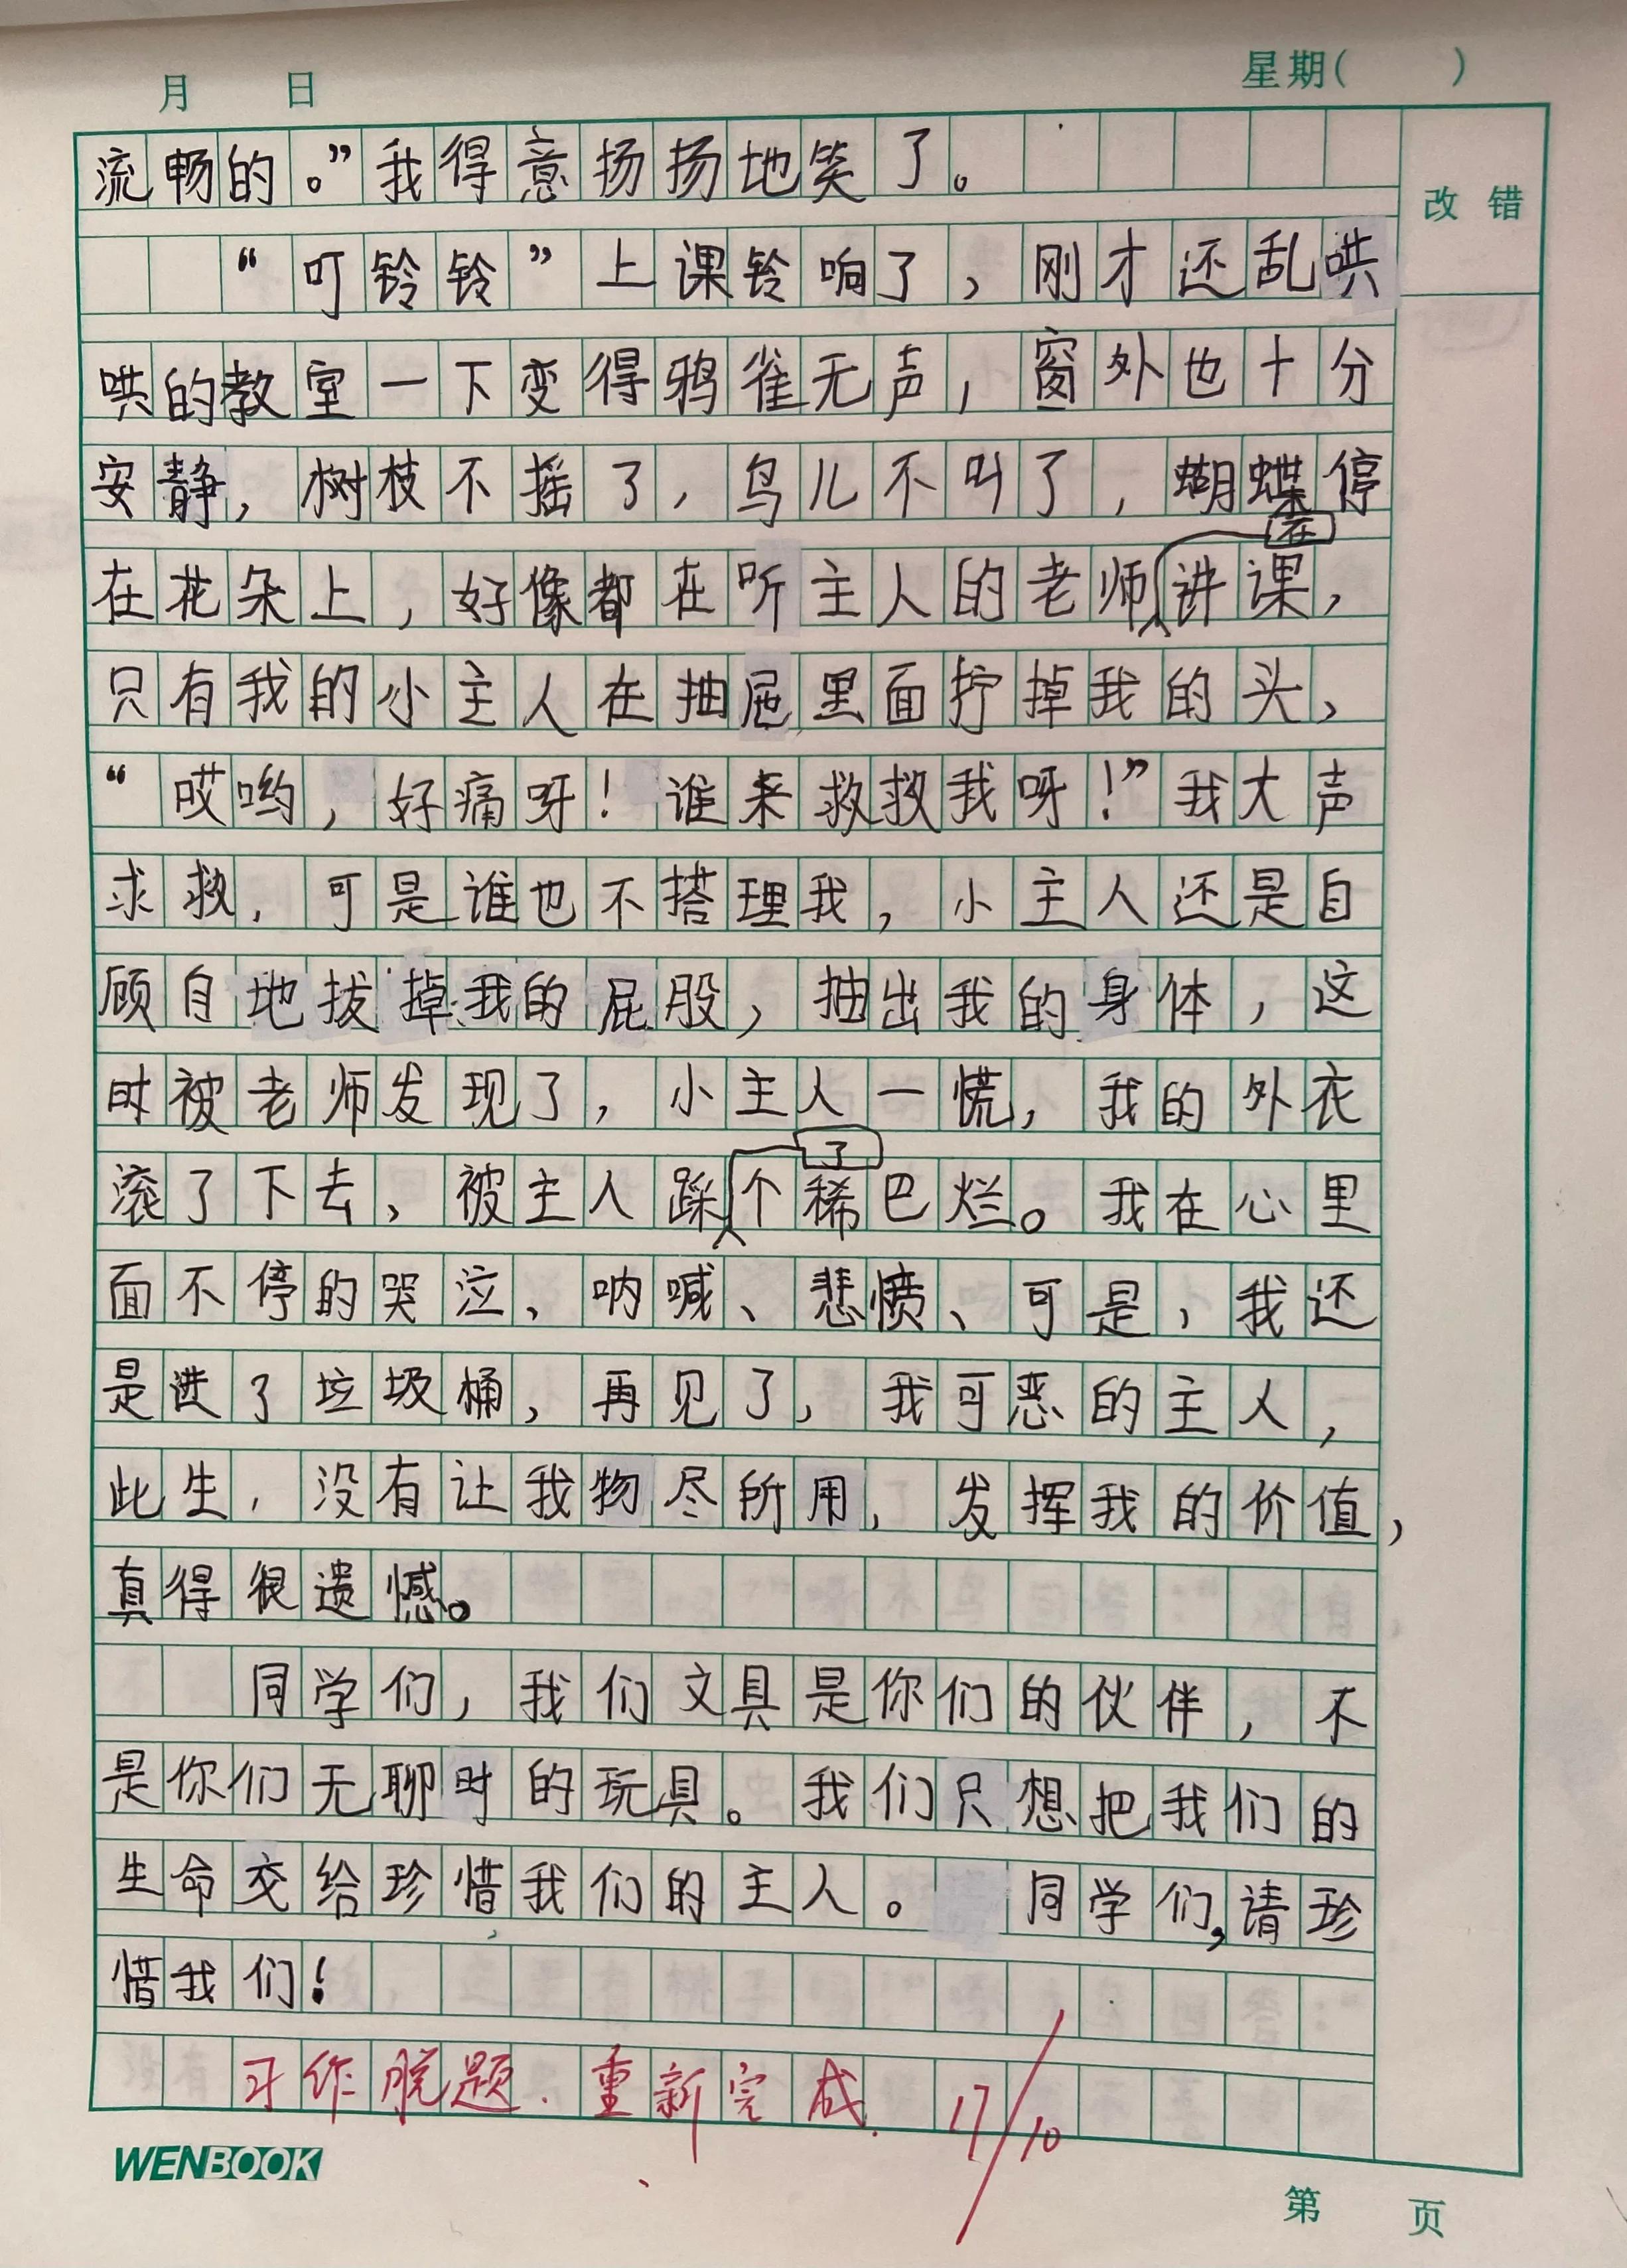 月 日 星期( )
流畅的。”我得意扬扬地笑了。
改错
“叮铃铃”上课铃响了，刚才还乱哄
哄的教室一下变得鸦雀无声，窗外也十分
安静，树枝不摇了，鸟儿不叫了，蝴蝶停
在花朵上，好像都在听主人的老师在讲课，
只有我的小主人在抽屉里面拧掉我的头，
“哎哟，好痛呀！谁来救救我呀！”我大声
求救，可是谁也不搭理我，小主人还是自
顾自地拔掉我的屁股，抽出我的身体，这
时被老师发现了，小主人一慌，我的外衣
滚了下去，被主人踩了个稀巴烂。我在心里
面不停的哭泣、呐喊、悲愤、可是，我还
是进了垃圾桶，再见了，我可恶的主人，
此生，没有让我物尽所用，发挥我的价值，
真得很遗憾。
同学们，我们文具是你们的伙伴，不
是你们无聊时的玩具。我们只想把我们的
生命交给珍惜我们的主人。同学们，请珍
惜我们！
习作脱题.重新完成. 17/10
WENBOOK
第 页